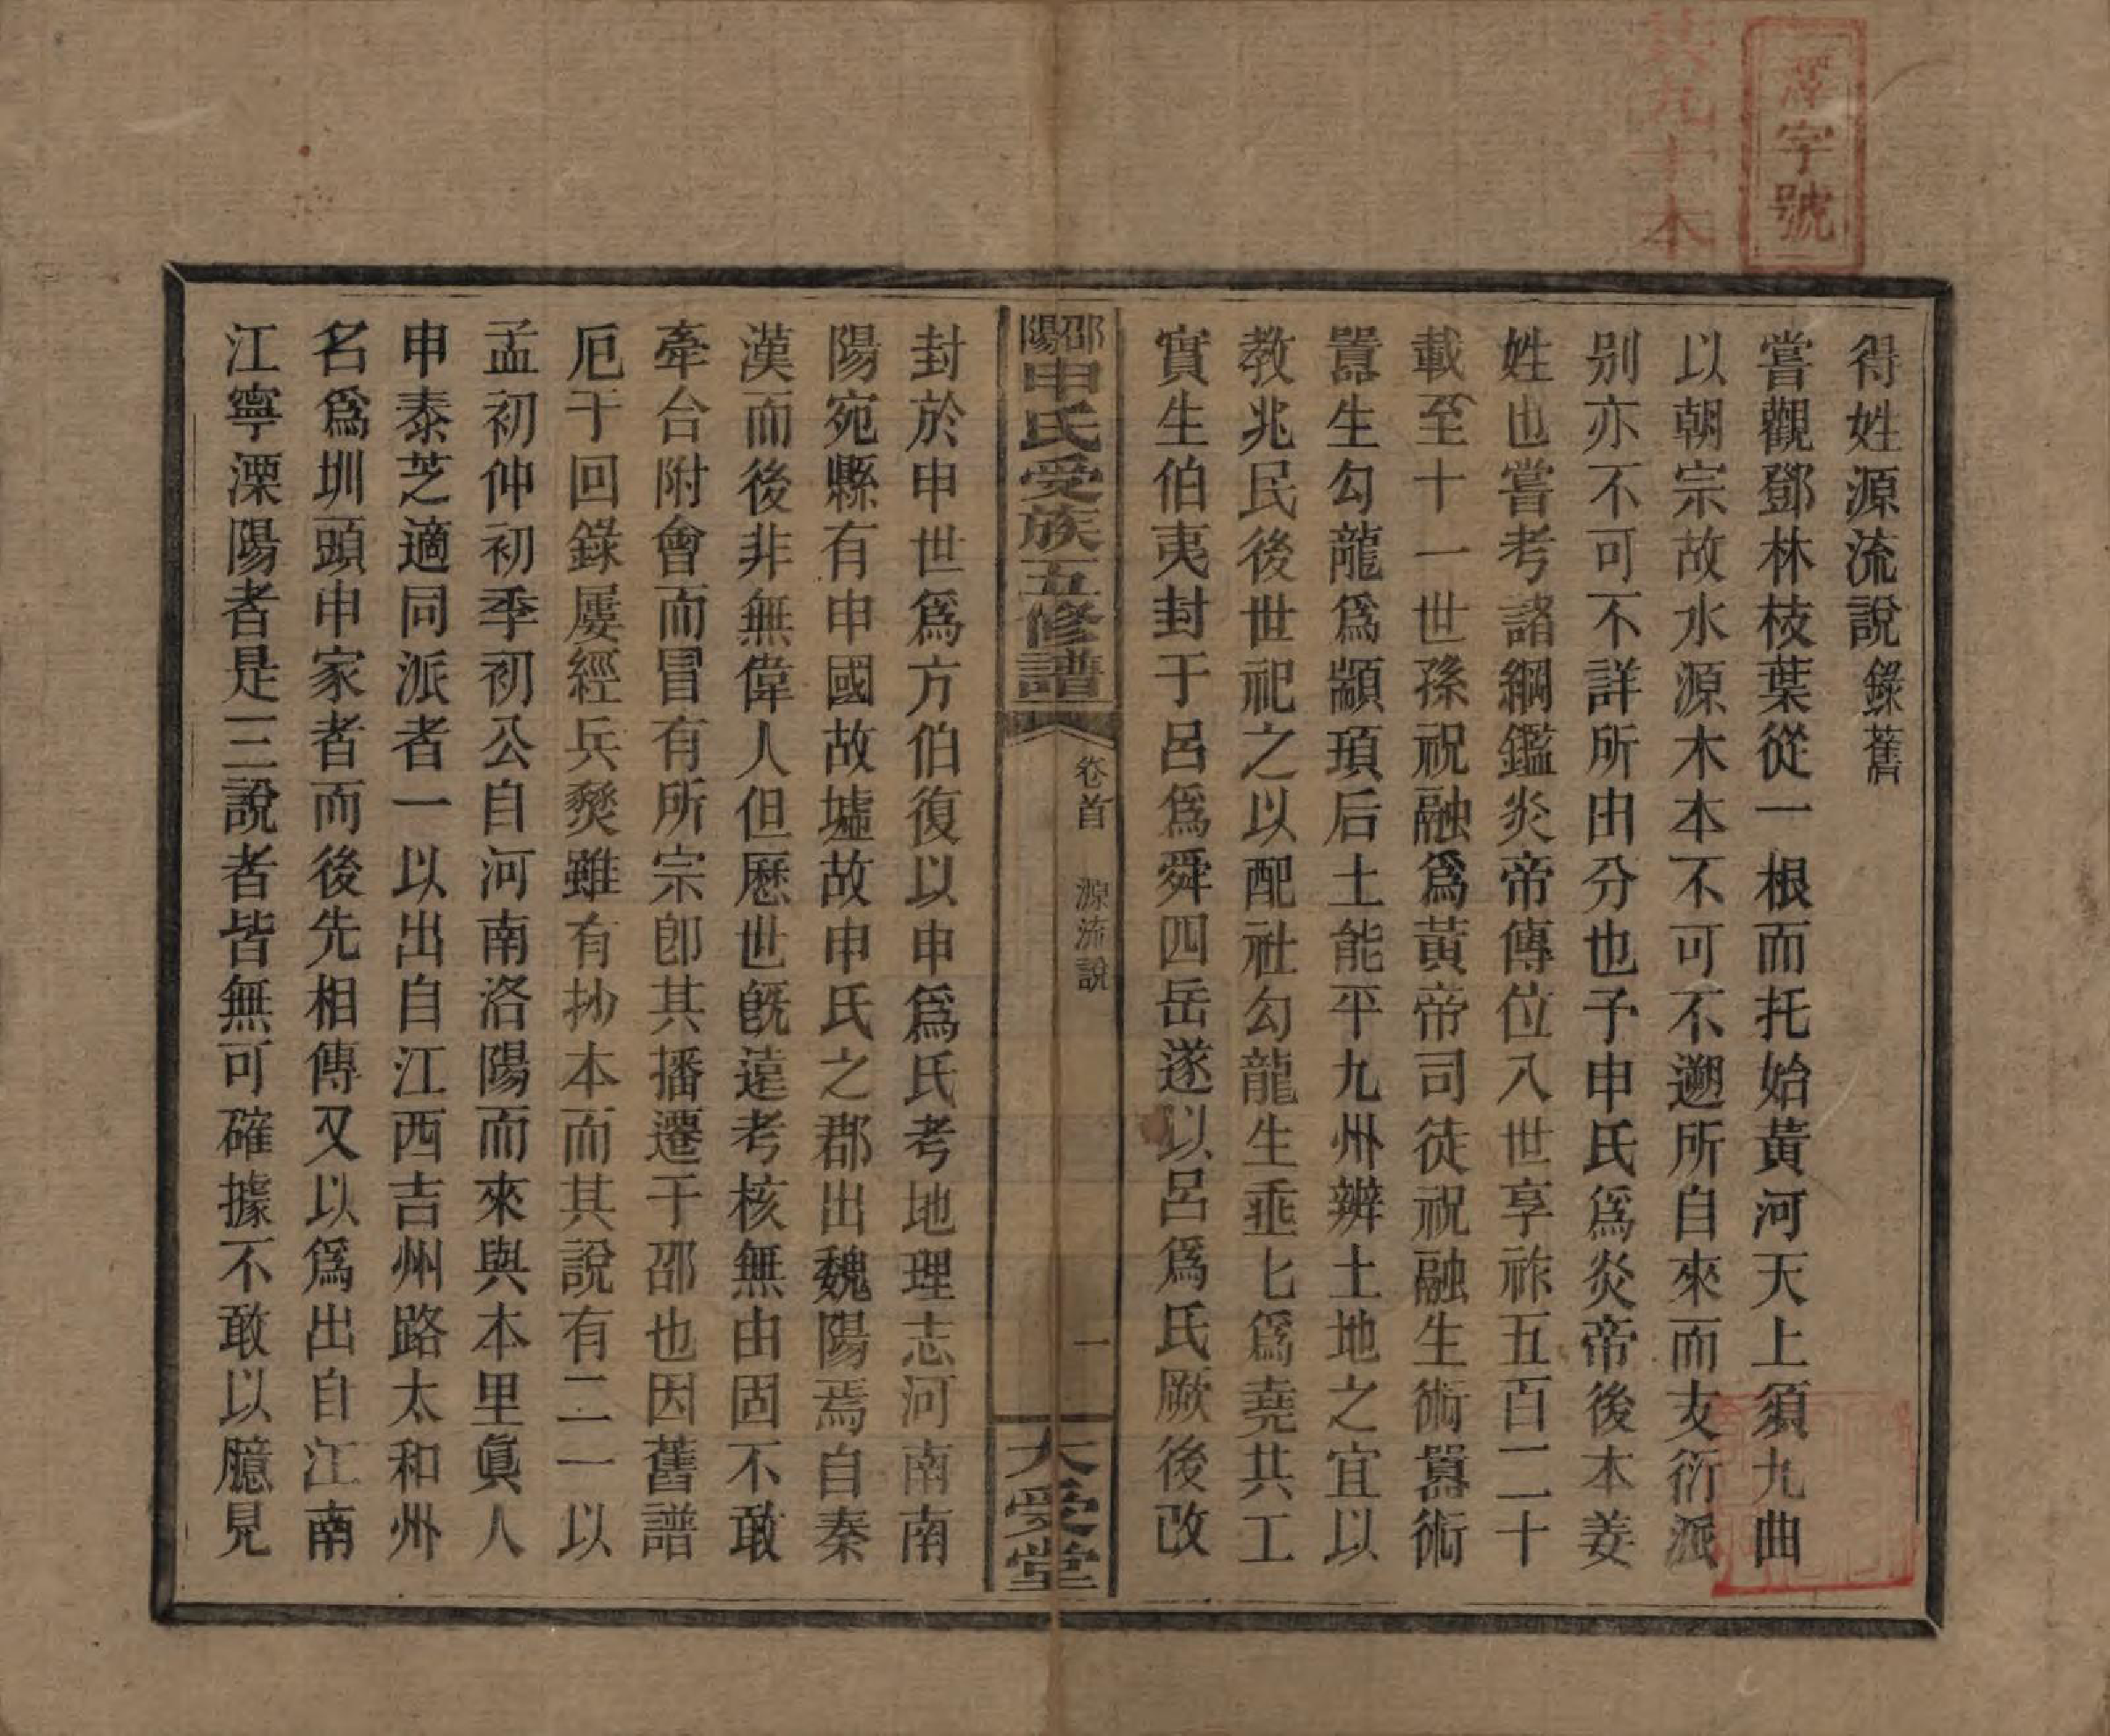 字號
共九十本
得姓源流說 錄舊
嘗觀鄧林枝葉從一根而托始黃河天上須九曲
以朝宗故水源木本不可不遡所自來而支衍派
别亦不可不詳所由分也予申氏爲炎帝後本姜
姓也嘗考諸綱鑑炎帝傳位入世享祚五百二十
載至十一世孫祝融爲黃帝司徒祝融生術嚻術
嚻生勾龍爲顓頊后土能平九州辨土地之宜以
教兆民後世祀之以配社勾龍生垂七爲堯共工
實生伯夷封于呂爲舜四岳遂以呂爲氏厥後改
邵陽申氏受族五修譜
卷首 源流說
一
大受堂
封於申世爲方伯復以申爲氏考地理志河南南
陽宛縣有申國故墟故申氏之郡出魏陽焉自秦
漢而後非無偉人但歷世旣遠考核無由固不敢
牽合附會而冒有所宗卽其播遷于邵也因舊譜
厄于回錄屢經兵燹雖有抄本而其說有二一以
孟初仲初季初公自河南洛陽而來與本里眞人
申泰芝適同派者一以出自江西吉州路太和州
名爲圳頭申家者而後先相傳又以爲出自江南
江寧溧陽者是三說者皆無可確據不敢以臆見